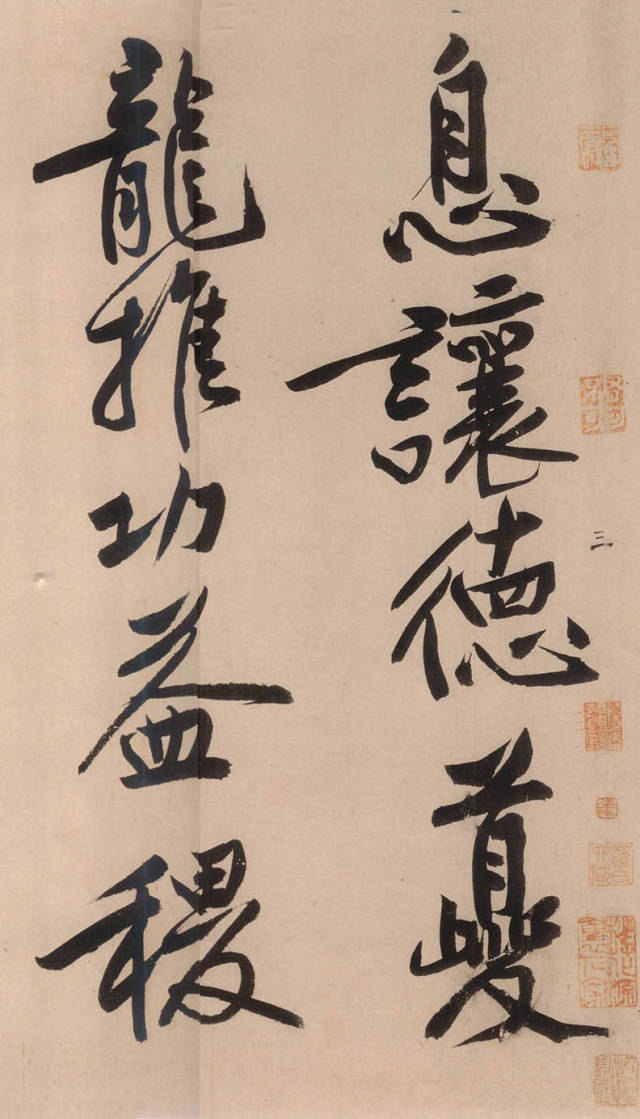 息讓德夔
龍推功益稷
三